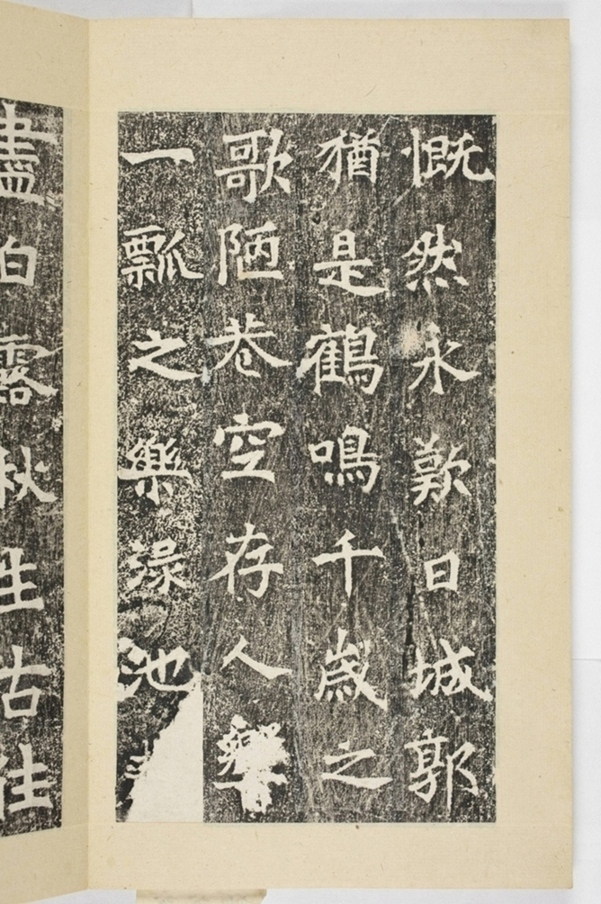 慨然永歎曰城郭
猶是鶴鳴千歲之
歌陋巷空存人
一瓢之樂渌池
盡白露秋生古往